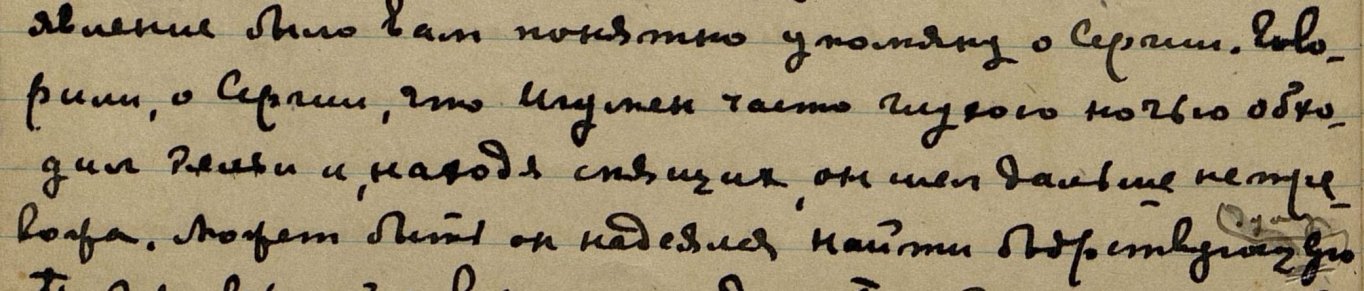 явление было Вам понятно упомяну о Сергии. Гово-
рили, о Сергии, что Игумен часто глухою ночью обхо-
дил кельи и, находя спящих, он шел дальше не тре-
вожа. Может быть он надеялся найти бодрствующ